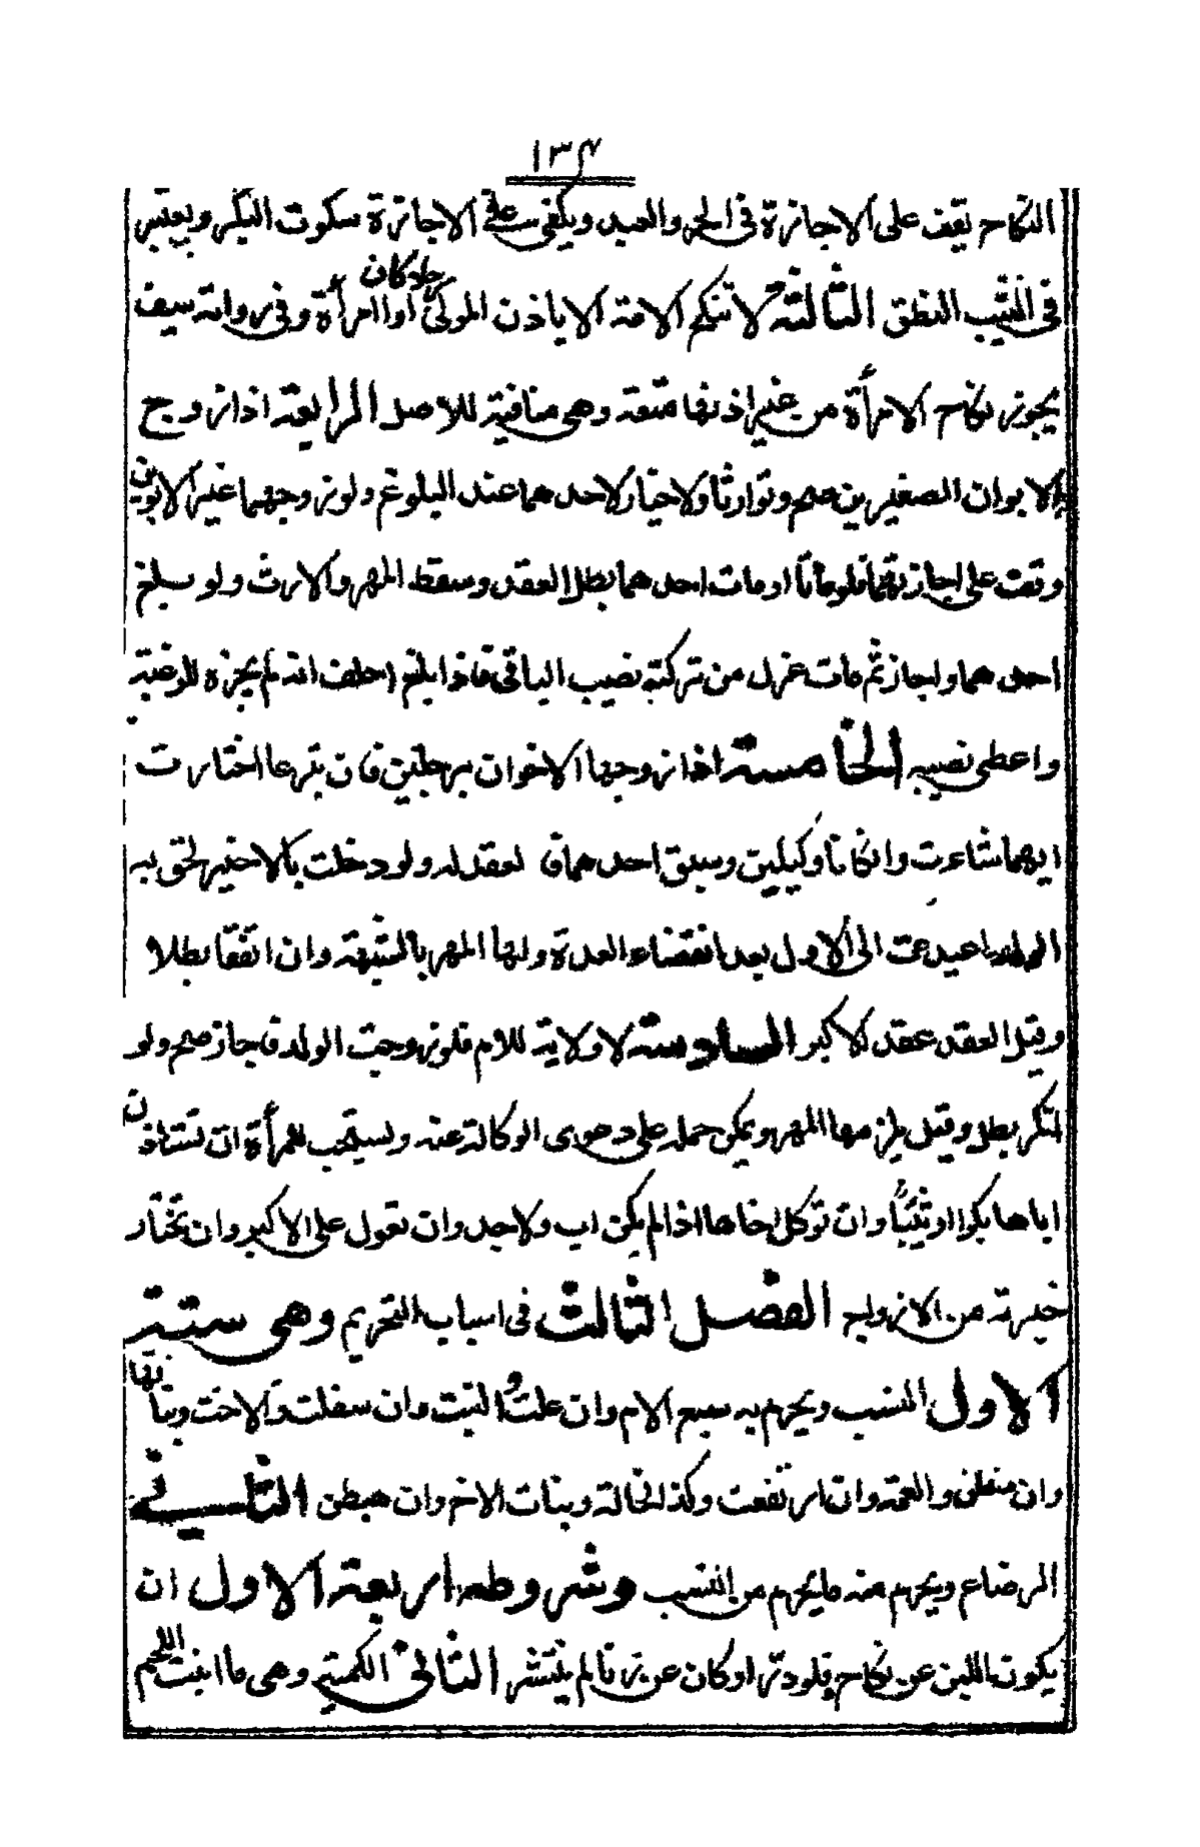 ١٣٤
النكاح يقف على الاجازة فى الحر والعبد ويكفى فى الاجازة سكوت البكر ويعتبر
فى الثيب النطق الثالثة لا تنكح الامة الا باذن المولى رجلا كان او امرأة وفى رواية سيف
يجوز نكاح الامرأة من غير اذنها متعة وهى منافية للاصل الرابعة اذا زوج
الابوان الصغيرين صح وتوارثا ولا خيار لاحدهما عند البلوغ ولو زوجهما غير الابوين
وقف على اجازتهما فلو ماتا او مات احدهما بطل العقد وسقط المهر والارث ولو بلغ
احدهما واجاز ثم مات عزل من تركته نصيب الباقى فاذا بلغ احلف انه لم يجزه للرغبة
واعطى نصيبه الخامسة اذا زوجها الاخوان برجلين فان تبرعا اختارت
ايهما شاءت وان كانا وكيلين وسبق احدهما فالعقد له ولو دخلت بالاخير لحق به
الولد واعيدت الى الاول بعد انقضاء العدة ولها المهر بالشبهة وان اتفقا بطلا
وقيل العقد عقد الاكبر السادسة لا ولاية للام فلو زوجت الولد فاجاز صح ولو
انكر بطل وقيل يلزمها المهر ويمكن حمله على دعوى الوكالة عنه ويستحب للمرأة ان تستاذن
اباها بكرا او ثيبا وان توكل اخاها اذا لم يكن اب ولا جد وان تعول على الاكبر وان تختار
خيرته من الازواج الفصل الثالث فى اسباب التحريم وهى ستة
الاول النسب ويحرم به سبع الام وان علت والبنت وان سفلت والاخت وبناتها
وان سفلن والعمة وان ارتفعت وكذا الخالة وبنات الاخ وان هبطن الثانى
الرضاع ويحرم منه ما يحرم من النسب وشروطه اربعة الاول ان
يكون اللبن عن نكاح فلو در او كان عن زنا لم ينشر الثانى الكمية وهى ما انبت اللحم